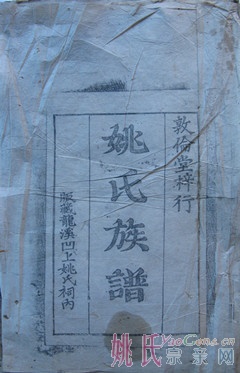 敦倫堂梓行
姚氏族譜
版藏龍溪凹上姚氏祠內
姚氏宗亲网
YaoGens.cn